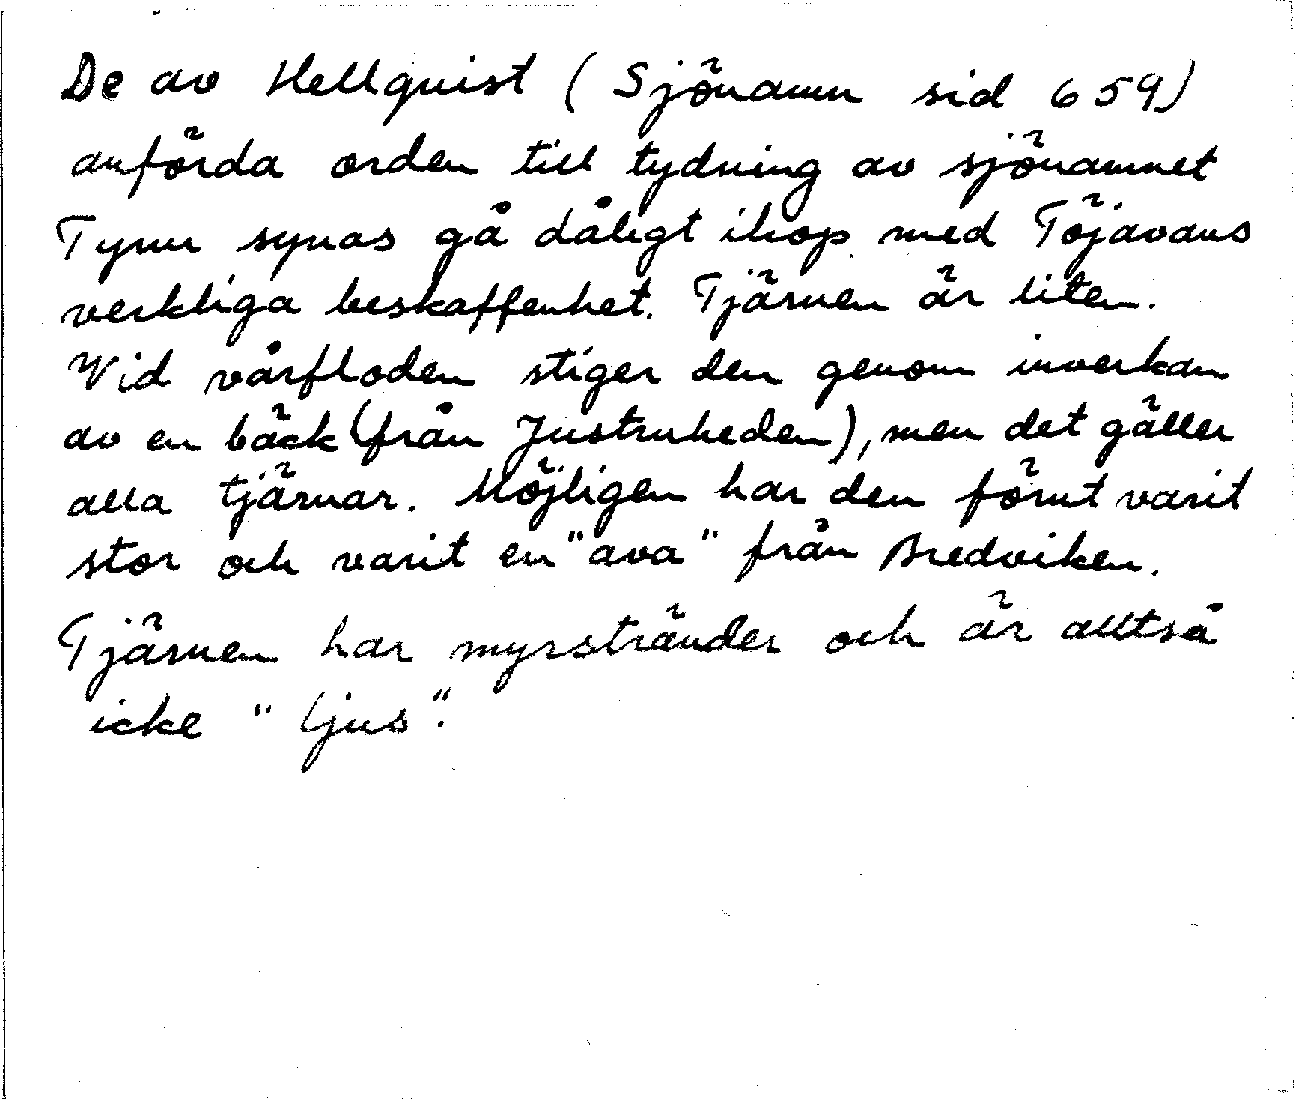 De av Hellquist (Sjönamn sid 659)
anförda orden till tydning av sjönamnet
Tynn synas gå dåligt ihop med Töjavans
verkliga beskaffenhet. Tjärnen är liten.
Wid vårfloden stiger den genom inverkan
av en bäck (från Justruheden), men det gäller
alla tjärnar. Möjligen har den förut varit
stor och varit en "ava" från Bredviken.
Tjärnen har myrstränder och är alltså
icke "ljus".